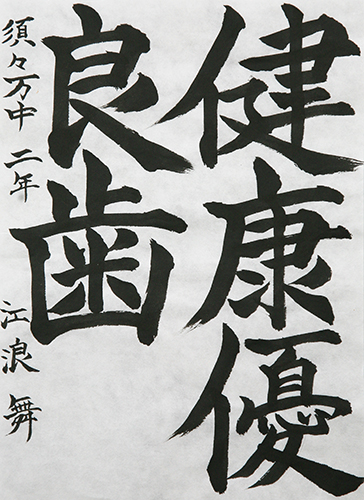 健康優
良歯
須々万中 二年 江浪 舞